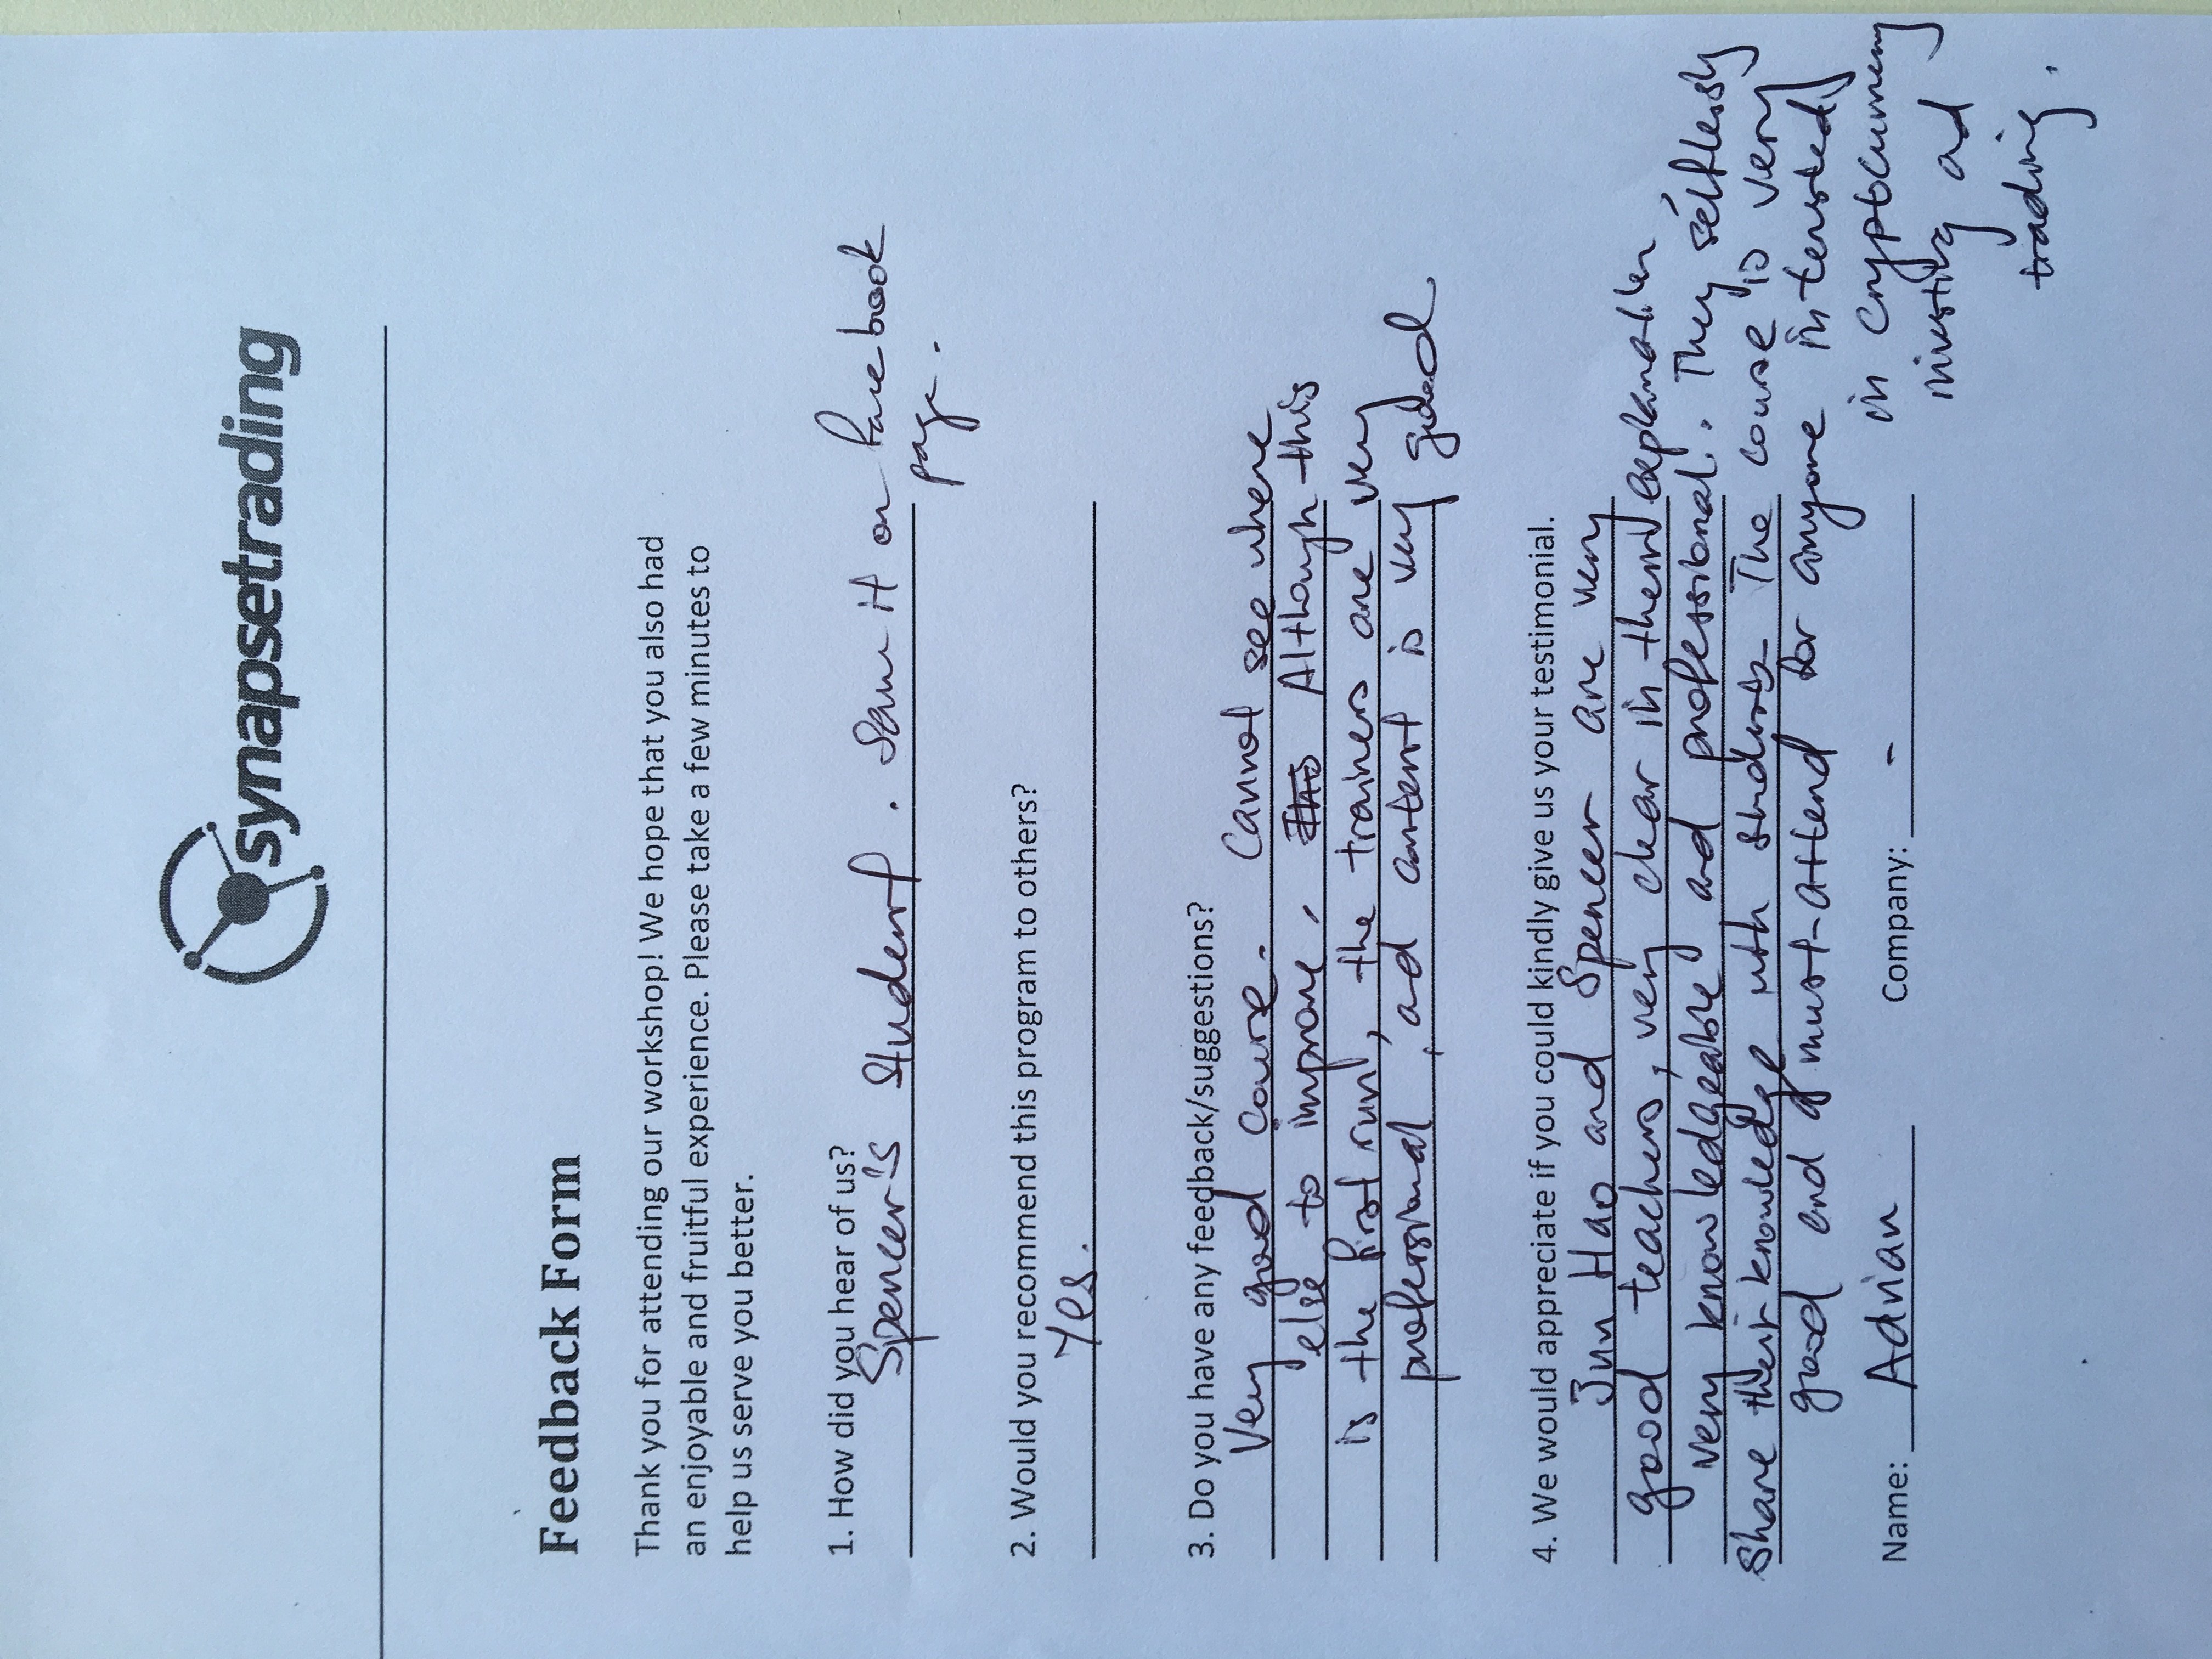 synapsetrading
Feedback Form
Thank you for attending our workshop! We hope that you also had
an enjoyable and fruitful experience. Please take a few minutes to
help us serve you better.
1. How did you hear of us?
Spencer's student. Saw it on Facebook
page.
2. Would you recommend this program to others?
Yes.
3. Do you have any feedback/suggestions?
Very good course. Cannot see where
else to improve. Although this
is the first run, the trainers are very
professional, and content is very good
4. We would appreciate if you could kindly give us your testimonial.
Jun Hao and Spencer are very
good teachers, very clear in their explanation
very knowledgeable and professional. They selflessly
share their knowledge with students. The course is very
good and a must-attend for anyone interested
in cryptocurrency
investing and
trading.
Name: Adrian Company: -